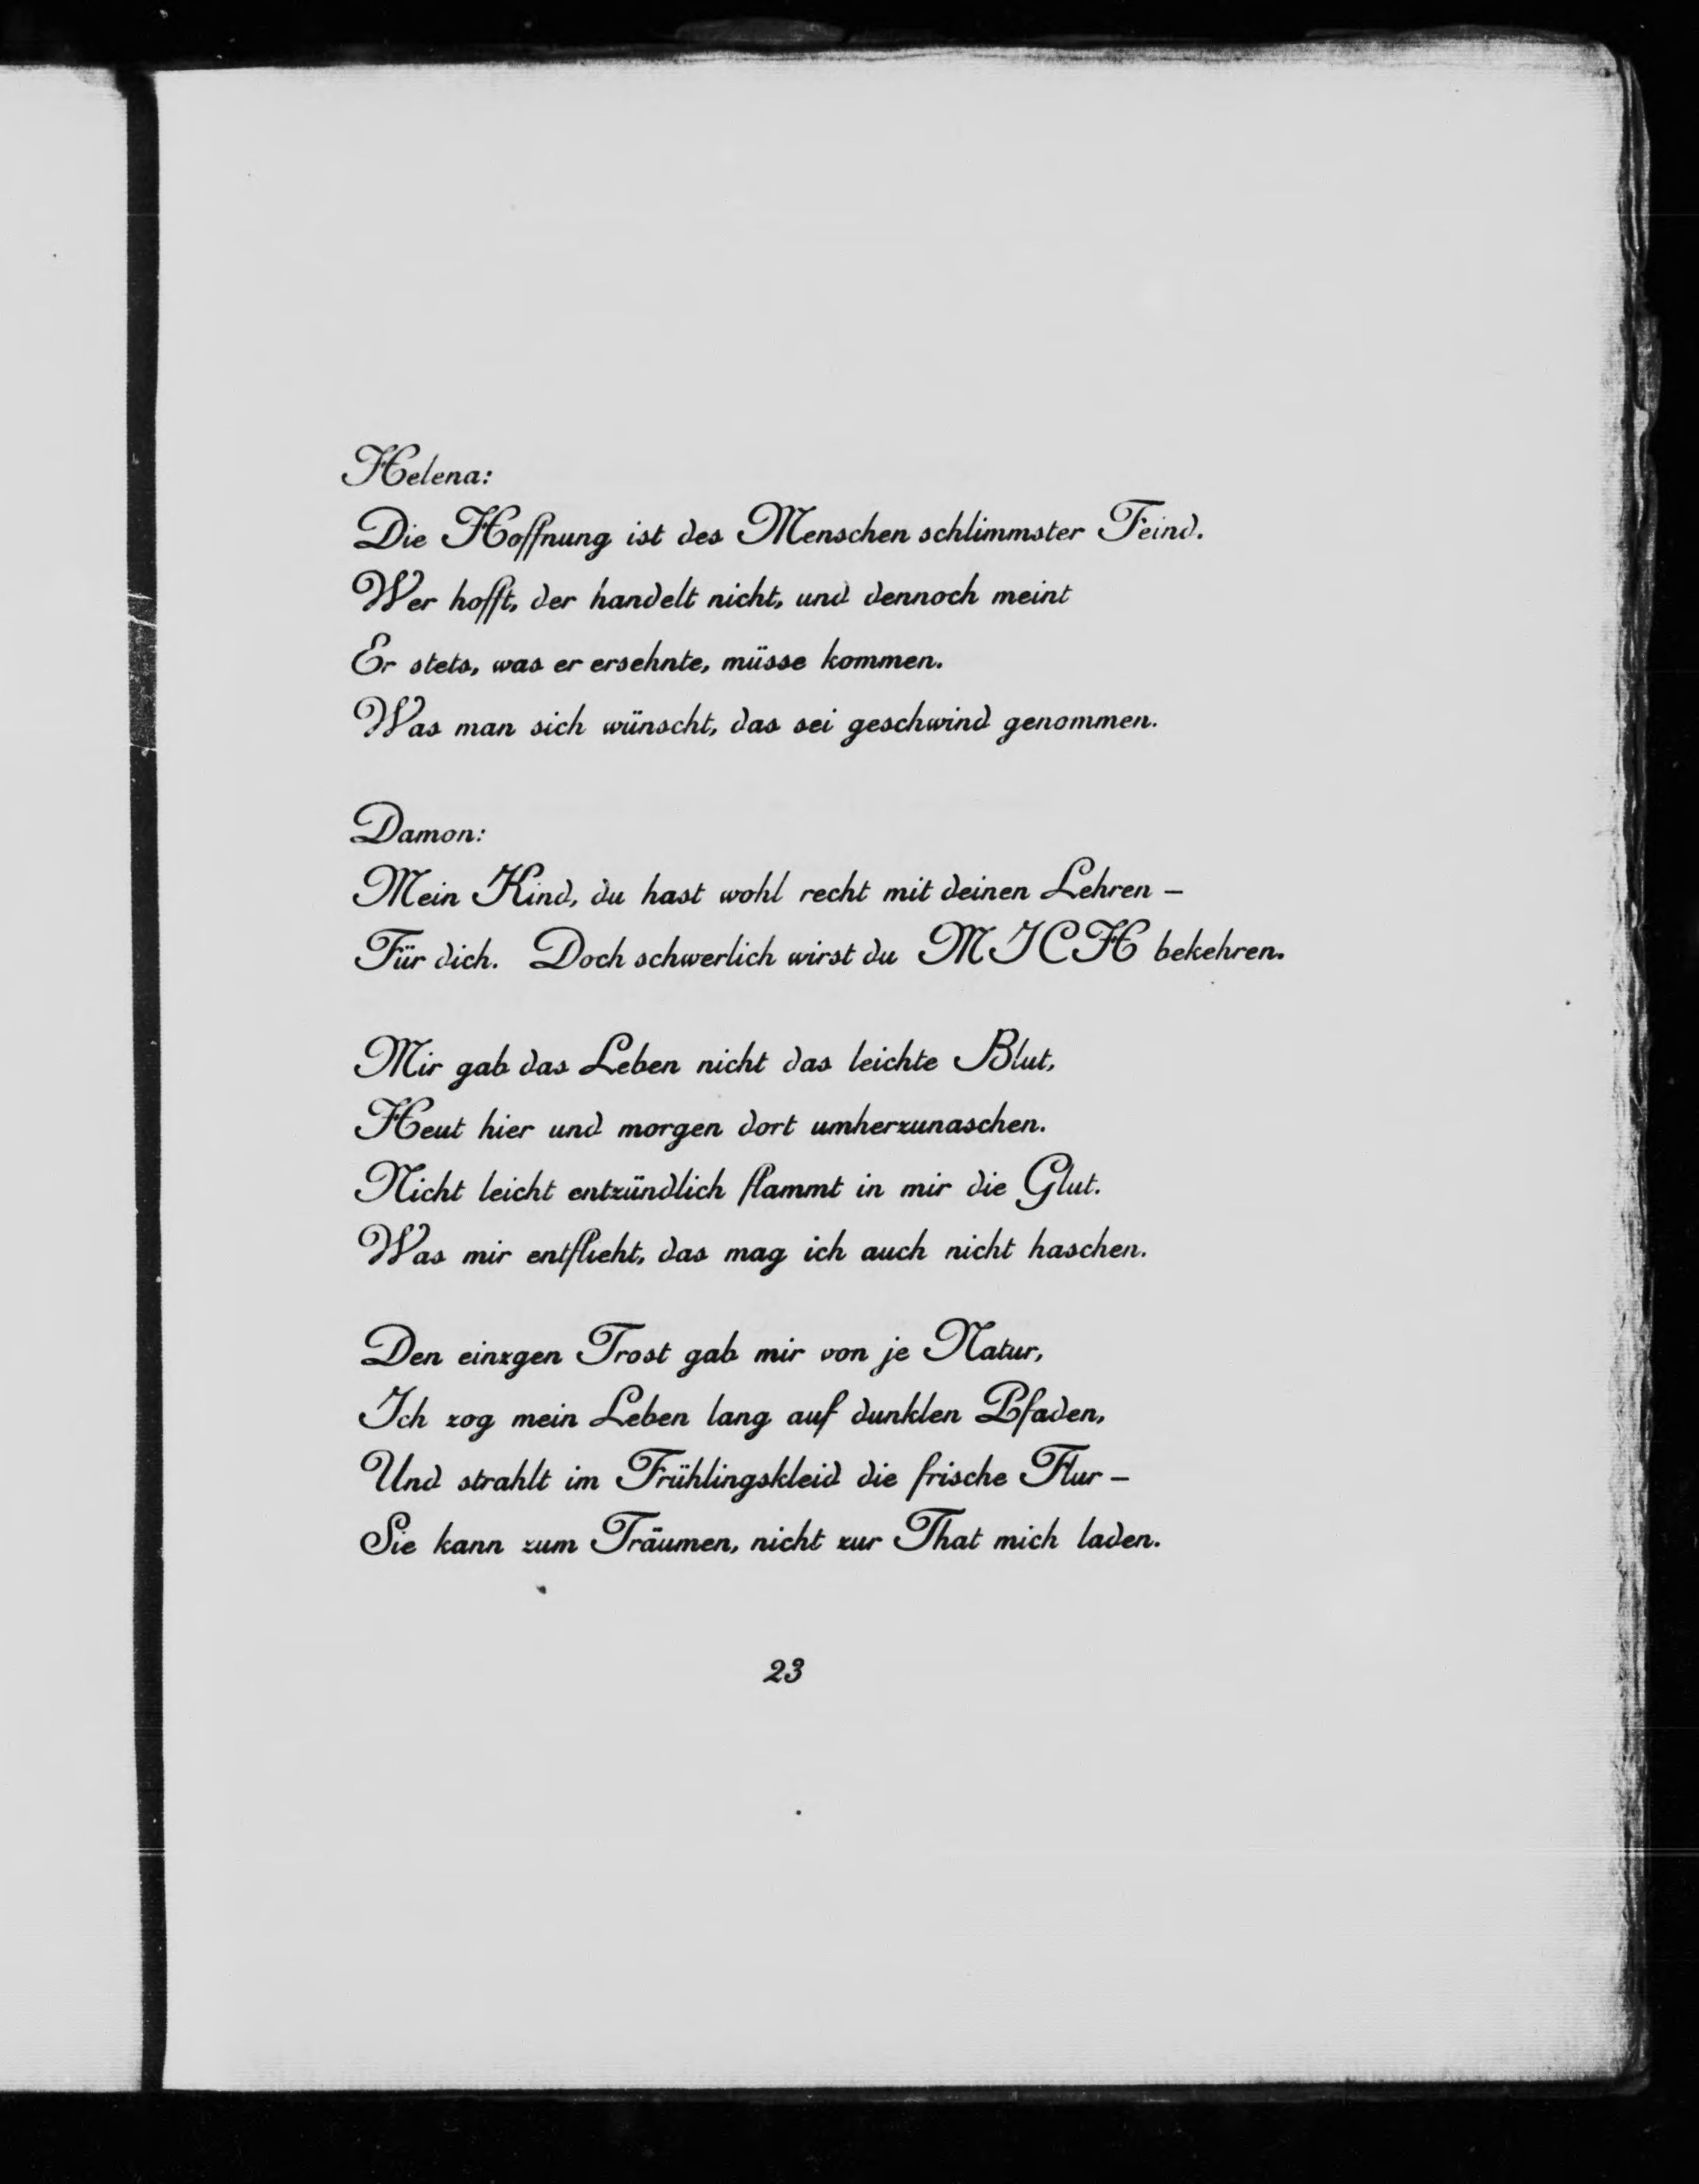 Helena:
Die Hoffnung ist des Menschen schlimmster Feind.
Wer hofft, der handelt nicht, und dennoch meint
Er stets, was er ersehnte, müsse kommen.
Was man sich wünscht, das sei geschwind genommen.
Damon:
Mein Kind, du hast wohl recht mit deinen Lehren –
Für dich. Doch schwerlich wirst du MICH bekehren.
Mir gab das Leben nicht das leichte Blut,
Heut hier und morgen dort umherzunaschen.
Nicht leicht entzündlich flammt in mir die Glut.
Was mir entflieht, das mag ich auch nicht haschen.
Den einzgen Trost gab mir von je Natur,
Ich zog mein Leben lang auf dunklen Pfaden,
Und strahlt im Frühlingskleid die frische Flur –
Sie kann zum Träumen, nicht zur That mich laden.
23